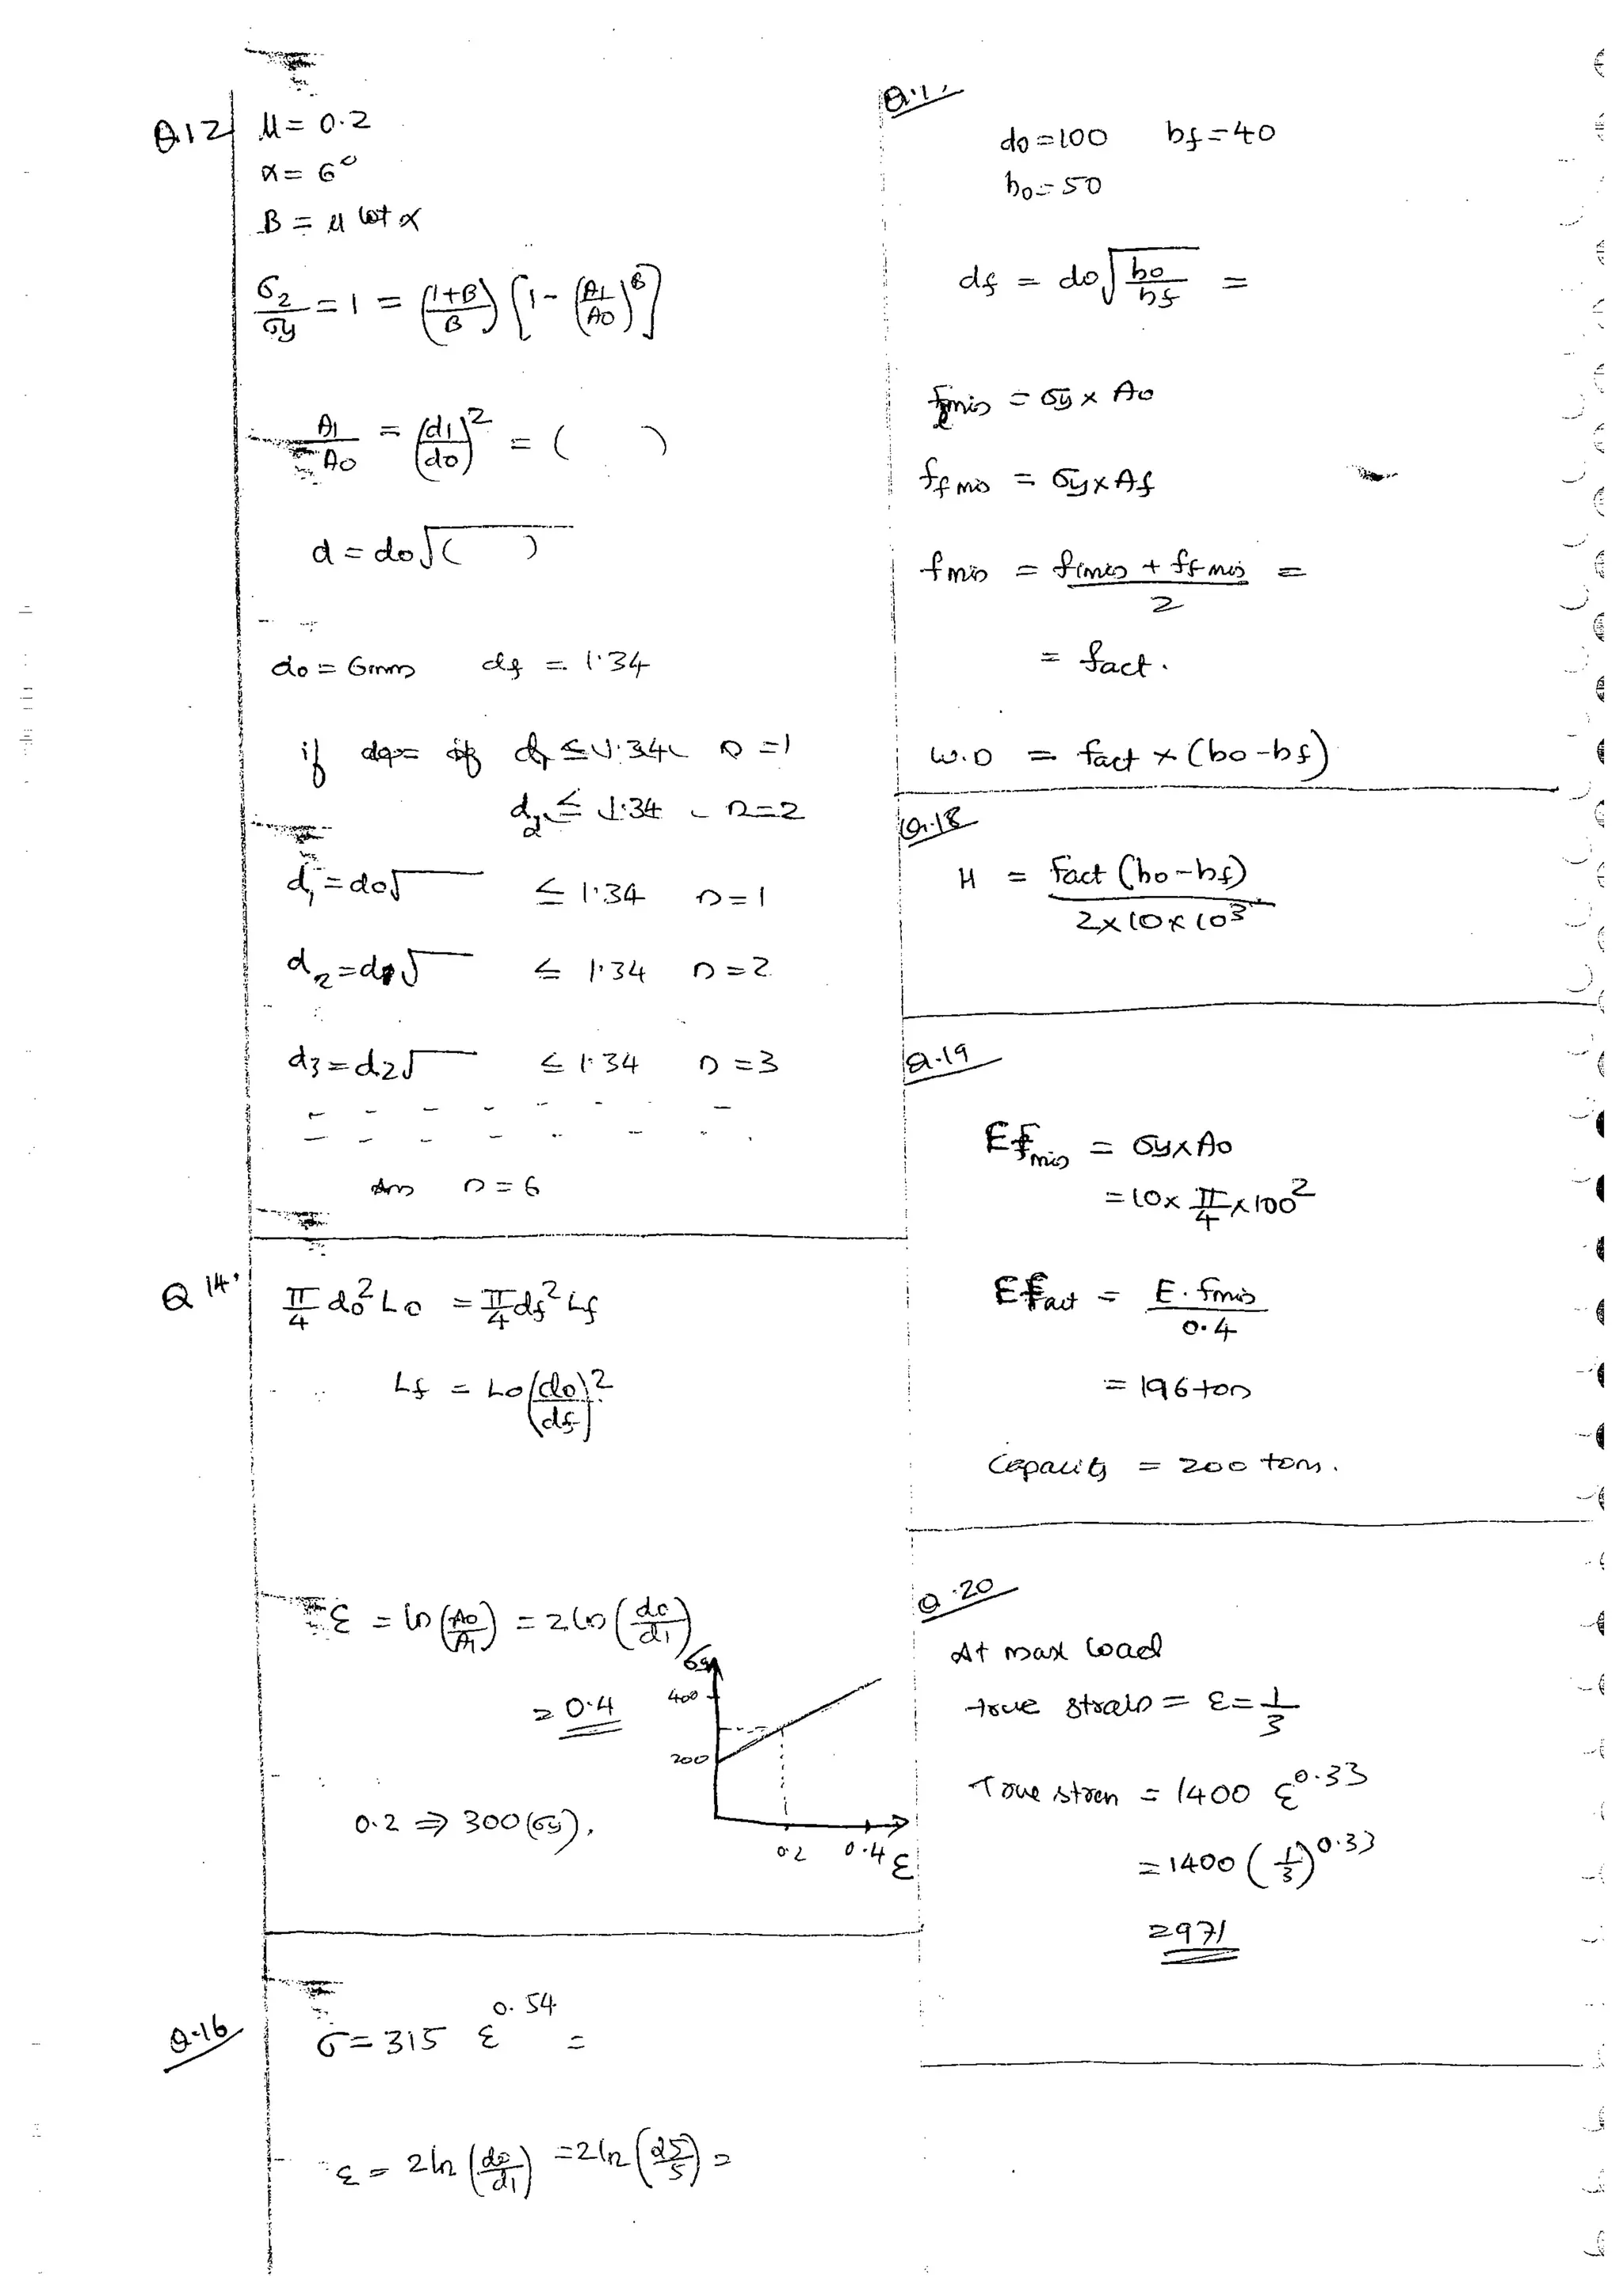 Q.12 μ = 0.2
α = 6°
B = μ cot α
σ2/σy = 1 = ((1+B)/B) [1 - (A1/A0)^B]
A1/A0 = (d1/d0)^2 = ( )
d = d0 √( )
d0 = 6mm df = 1.34
if d1 ≤ 1.34 n = 1
d2 ≤ 1.34 - n = 2
d1 = d0√ ≤ 1.34 n = 1
d2 = d1√ ≤ 1.34 n = 2
d3 = d2√ ≤ 1.34 n = 3
Ans n = 6
Q 14.
π/4 d0^2 L0 = π/4 df^2 Lf
Lf = L0 (d0/df)^2
ε = ln(A0/A1) = 2 ln(d0/d1)
= 0.4
0.2 ⇒ 300 (σy).
σy
400
200
0.2 0.4 ε
Q.16
σ = 315 ε^0.54 =
ε = 2 ln(d0/d1) = 2 ln(25/5) =
d0 = 100 hf = 40
h0 = 50
df = d0 √(h0/hf) =
Fimin = σy × A0
Ffmin = σy × Af
fmin = (fimin + ffmin)/2 =
= fact.
W.D = fact × (h0 - hf)
Q.18
H = Fact (h0 - hf) / (2 × 10 × 10^3)
Q.19
E fmin = σy × A0
= 10 × π/4 × 100^2
E Fact = E. fmin / 0.4
= 196 ton
Capacity = 200 tons.
Q.20
At max load
true strain = ε = 1/3
True stren = 1400 ε^0.33
= 1400 (1/3)^0.33
= 971